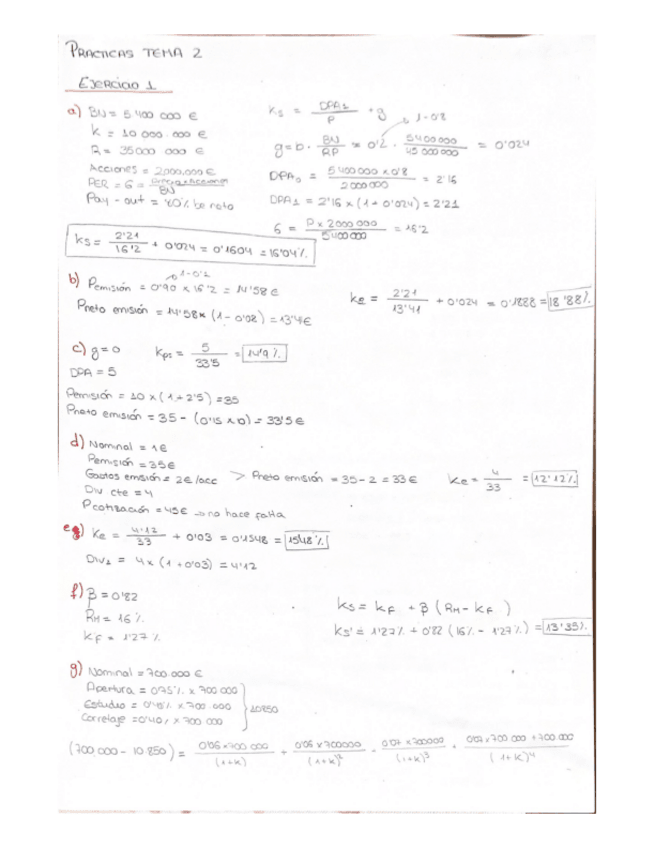 PRACTICAS TEMA 2
EJERCICIO 1
a) BN = 5 400 000 €
K = 10 000 000 €
R = 35 000 000 €
Acciones = 2.000.000 €
PER = 6 = Precio x Acciones / BN
Pay-out = 80% be neto
Ks = DPA1 / P + g
1 - 0'8
g = b · BN / RP = 0'2 · 5400000 / 45 000 000 = 0'024
DPA0 = 5 400 000 x 0'8 / 2 000 000 = 2'16
DPA1 = 2'16 x (1 + 0'024) = 2'21
6 = P x 2000 000 / 5400 000 = 16'2
Ks = 2'21 / 16'2 + 0'024 = 0'1604 = 16'04%
b) Pemisión = 0'90 x 16'2 = 14'58 €
1 - 0'2
Pneto emisión = 14'58 x (1 - 0'08) = 13'4 €
Ke = 2'21 / 13'41 + 0'024 = 0'1888 = 18'88%
c) g = 0
Kps = 5 / 33'5 = 14'9%
DPA = 5
Pemisión = 10 x (1 + 2'5) = 35
Pneto emisión = 35 - (0'15 x 10) = 33'5 €
d) Nominal = 1 €
Pemisión = 35 €
Gastos emisión = 2 €/acc
> Pneto emisión = 35 - 2 = 33 €
Ke = 4 / 33 = 12'12%
Div cte = 4
Pcotización = 45 € → no hace falta
e) Ke = 4'12 / 33 + 0'03 = 0'1548 = 15'48%
Div1 = 4 x (1 + 0'03) = 4'12
f) β = 0'82
RM = 16%
KF = 1'27%
Ks = KF + β (RM - KF)
Ks' = 1'27% + 0'82 (16% - 1'27%) = 13'35%
g) Nominal = 700.000 €
Apertura = 0'75% x 700 000
Estudio = x 700.000
Corretaje = x 700 000
10850
(700.000 - 10.850) = 0'06 x 700 000 / (1+K) + 0'06 x 700000 / (1+K)² + 0'07 x 700000 / (1+K)³ + 0'07 x 700 000 + 700 000 / (1+K)⁴